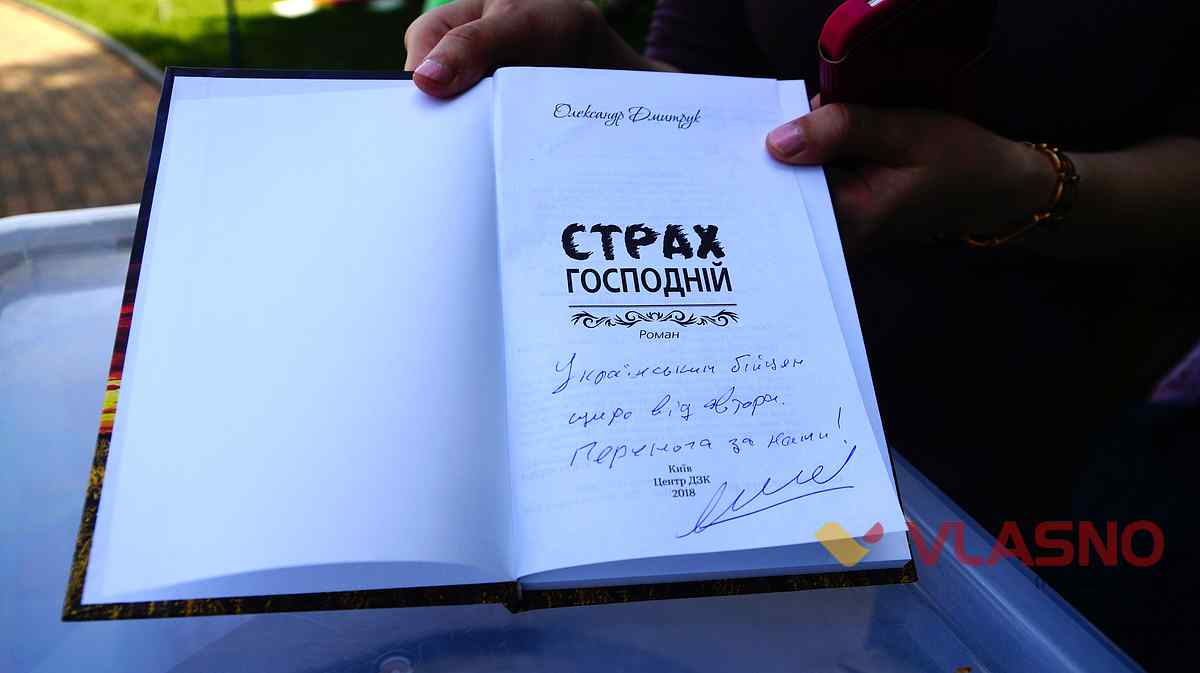 Олександр Дмитрук
СТРАХ
ГОСПОДНІЙ
Роман
Українським бійцям
щиро від автора.
Перемога за нами!
Київ
Центр ДЗК
2018
VLASNO